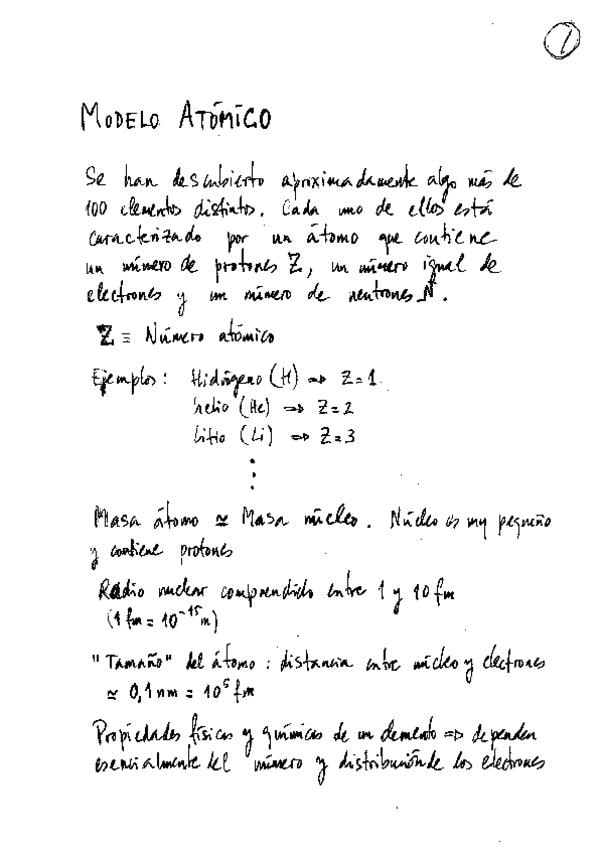 1
MODELO ATÓMICO
Se han descubierto aproximadamente algo más de
100 elementos distintos. Cada uno de ellos está
caracterizado por un átomo que contiene
un número de protones Z, un número igual de
electrones y un número de neutrones N.
Z ≡ Número atómico
Ejemplos: Hidrógeno (H) ⇒ Z=1
helio (He) ⇒ Z=2
litio (Li) ⇒ Z=3
⋮
Masa átomo ≃ Masa núcleo. Núcleo es muy pequeño
y contiene protones
Radio nuclear comprendido entre 1 y 10 fm
(1 fm = 10⁻¹⁵ m)
"Tamaño" del átomo: distancia entre núcleo y electrones
≃ 0,1 nm = 10⁵ fm
Propiedades físicas y químicas de un elemento ⇒ dependen
esencialmente del número y distribución de los electrones